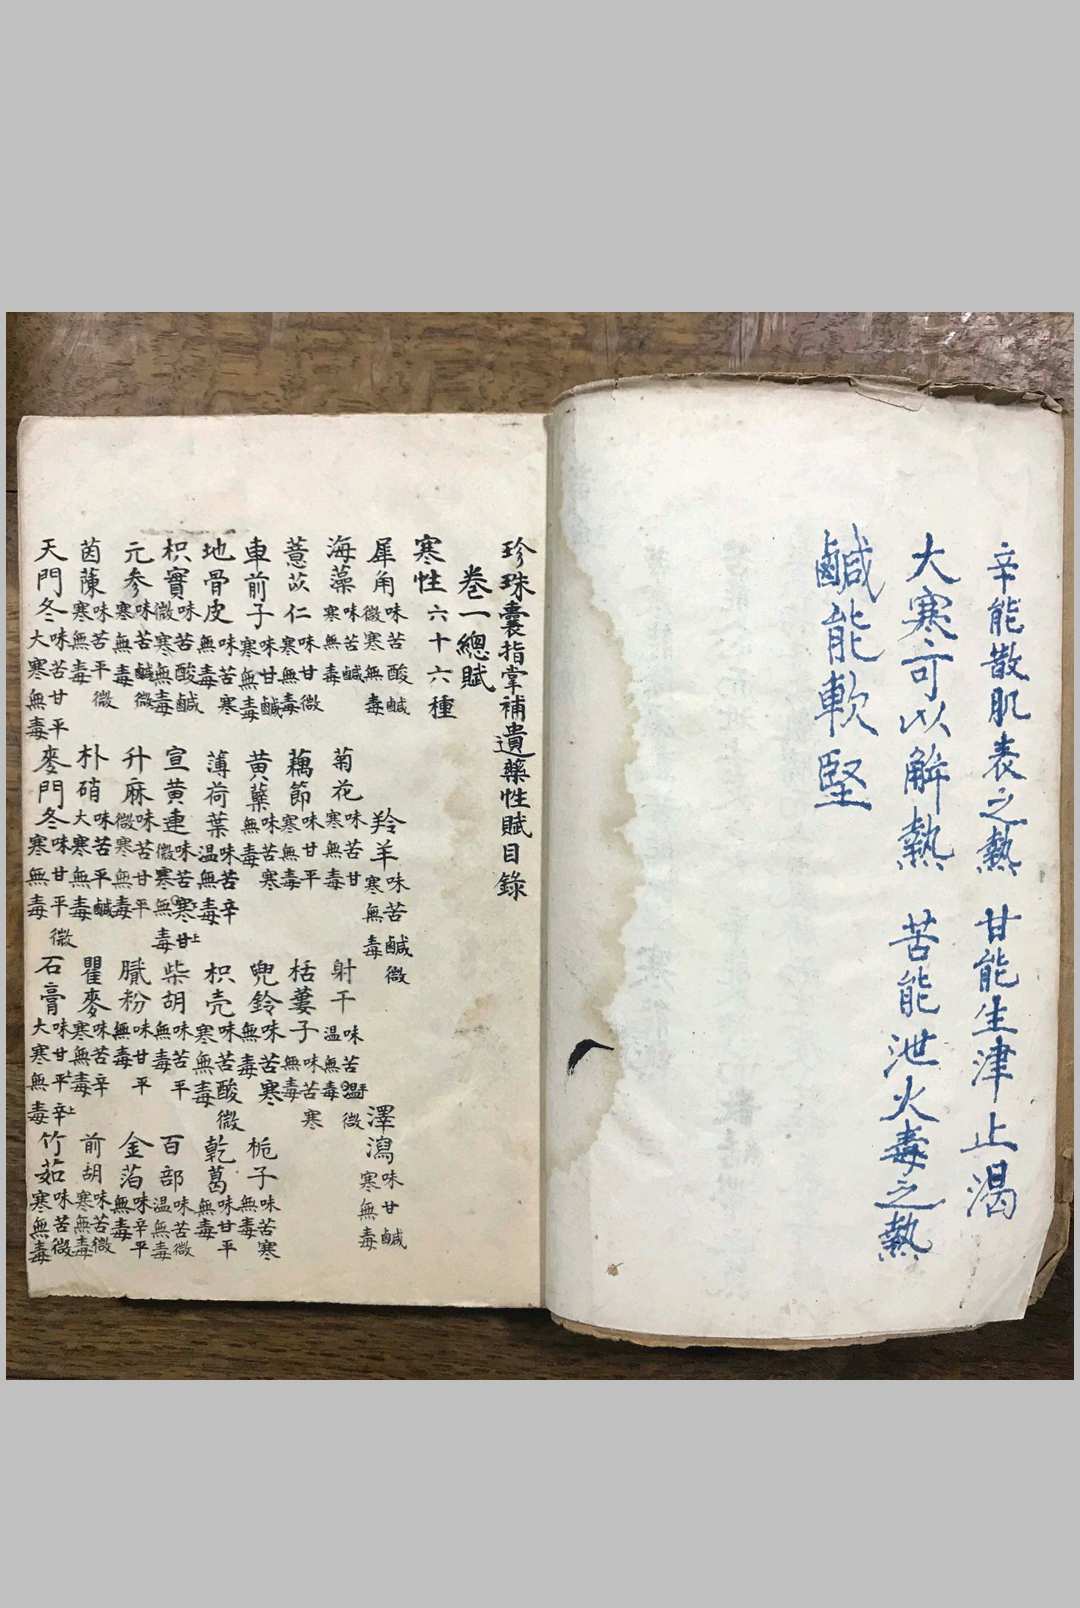 辛能散肌表之熱 甘能生津止渴
大寒可以解熱 苦能泄火毒之熱
鹹能軟堅
珍珠囊指掌補遺藥性賦目錄
卷一總賦
寒性六十六種
犀角 味苦酸鹹微寒無毒 羚羊 味苦鹹微寒無毒 澤瀉 味甘鹹寒無毒
海藻 味苦鹹寒無毒 菊花 味苦甘寒無毒 射干 味苦溫微溫無毒
薏苡仁 味甘微寒無毒 藕節 味甘平寒無毒 栝蔞子 味苦寒無毒
車前子 味甘鹹寒無毒 黃蘗 味苦寒無毒 兜鈴 味苦寒無毒 梔子 味苦寒無毒
地骨皮 味苦寒無毒 薄荷葉 味苦辛溫無毒 枳壳 味苦酸微寒無毒 乾葛 味甘平無毒
枳實 味苦酸鹹微寒無毒 宣黃連 味苦寒甘上微寒無毒 柴胡 味苦平無毒 百部 味苦微溫無毒
元参 味苦鹹微寒無毒 升麻 味苦甘平微寒無毒 膩粉 味甘平無毒 金箔 味辛平無毒
茵蔯 味苦平微寒無毒 朴硝 味苦平鹹大寒無毒 瞿麥 味苦辛寒無毒 前胡 味苦微寒無毒
天門冬 味苦甘平大寒無毒 麥門冬 味甘平微寒無毒 石膏 味甘平辛上大寒無毒 竹茹 味苦微寒無毒